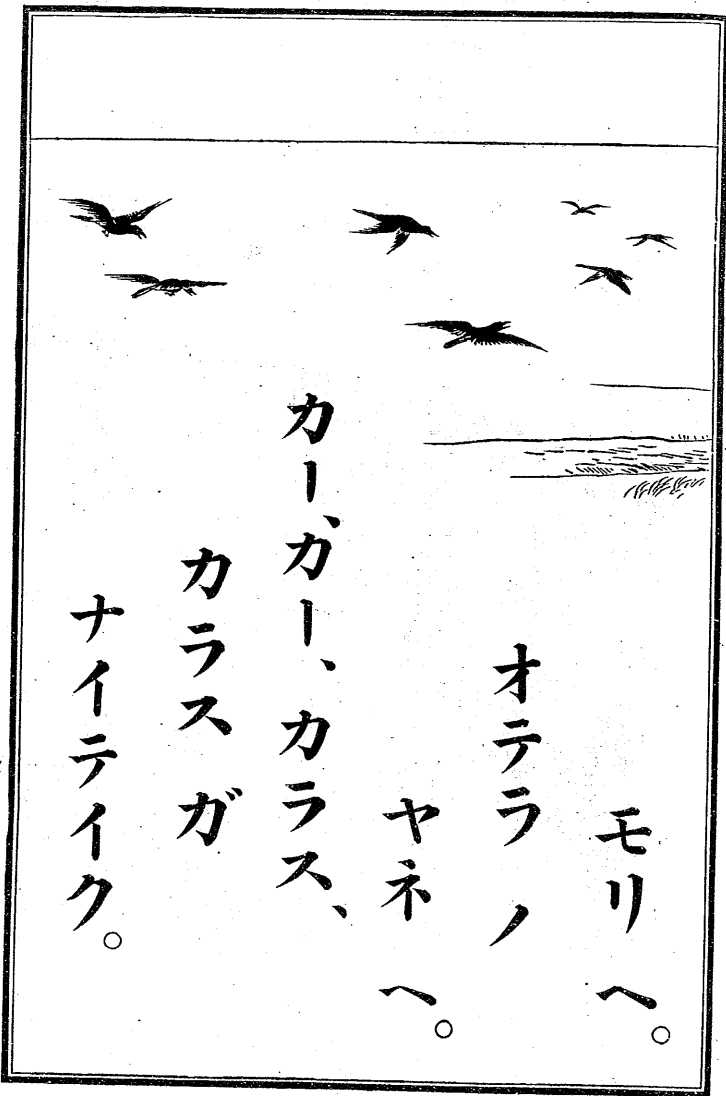 モリ ヘ。
オテラ ノ
ヤネ ヘ。
カー、カー、カラス、
カラス ガ
ナイテイク。